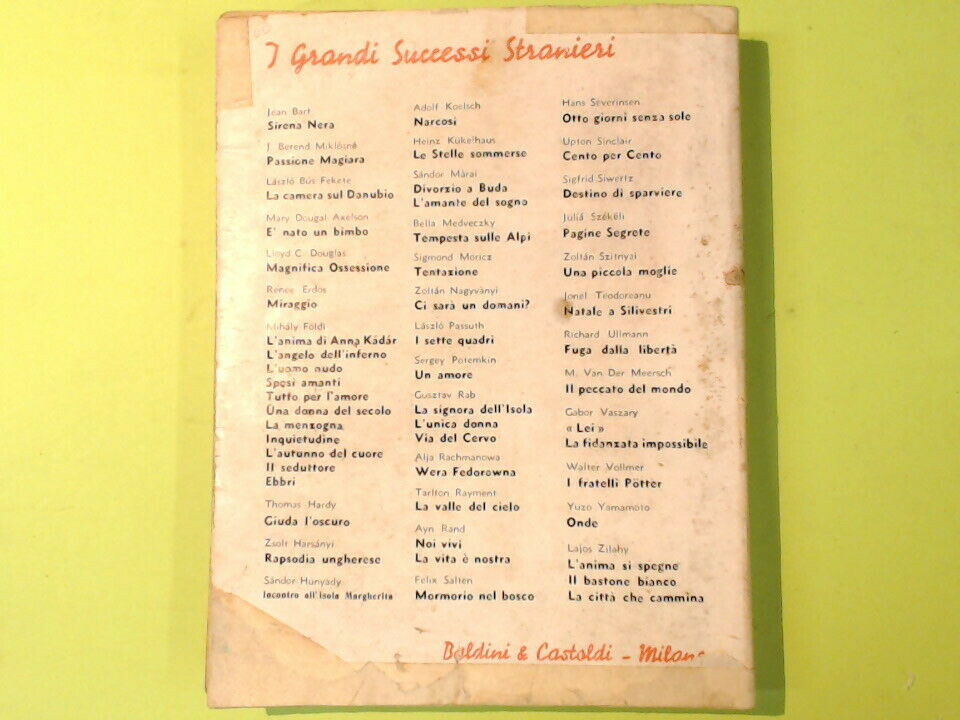 I Grandi Successi Stranieri
Jean Bart
Sirena Nera
J. Berend Miklósné
Passione Magiara
László Bús Fekete
La camera sul Danubio
Mary Dougal Axelson
E' nato un bimbo
Lloyd C. Douglas
Magnifica Ossessione
Renée Erdös
Miraggio
Mihály Földi
L'anima di Anna Kádár
L'angelo dell'inferno
L'uomo nudo
Sposi amanti
Tutto per l'amore
Una donna del secolo
La menzogna
Inquietudine
L'autunno del cuore
Il seduttore
Ebbri
Thomas Hardy
Giuda l'oscuro
Zsolt Harsányi
Rapsodia ungherese
Sándor Hunyady
Incontro all'Isola Margherita
Adolf Koelsch
Narcosi
Heinz Kükelhaus
Le Stelle sommerse
Sándor Márai
Divorzio a Buda
L'amante del sogno
Bella Medveczky
Tempesta sulle Alpi
Sigmond Moricz
Tentazione
Zoltán Nagyványi
Ci sarà un domani?
László Passuth
I sette quadri
Sergey Potemkin
Un amore
Gusztav Rab
La signora dell'Isola
L'unica donna
Via del Cervo
Alja Rachmanowa
Wera Fedorowna
Tarlton Rayment
La valle del cielo
Ayn Rand
Noi vivi
La vita è nostra
Felix Salten
Mormorio nel bosco
Hans Severinsen
Otto giorni senza sole
Upton Sinclair
Cento per Cento
Sigfrid Siwertz
Destino di sparviere
Juliá Székéli
Pagine Segrete
Zoltán Szitnyai
Una piccola moglie
Jonel Teodoreanu
Natale a Silivestri
Richard Ullmann
Fuga dalla libertà
M. Van Der Meersch
Il peccato del mondo
Gabor Vaszary
« Lei »
La fidanzata impossibile
Walter Vollmer
I fratelli Pötter
Yuzo Yamamoto
Onde
Lajos Zilahy
L'anima si spegne
Il bastone bianco
La città che cammina
Baldini & Castoldi - Milano